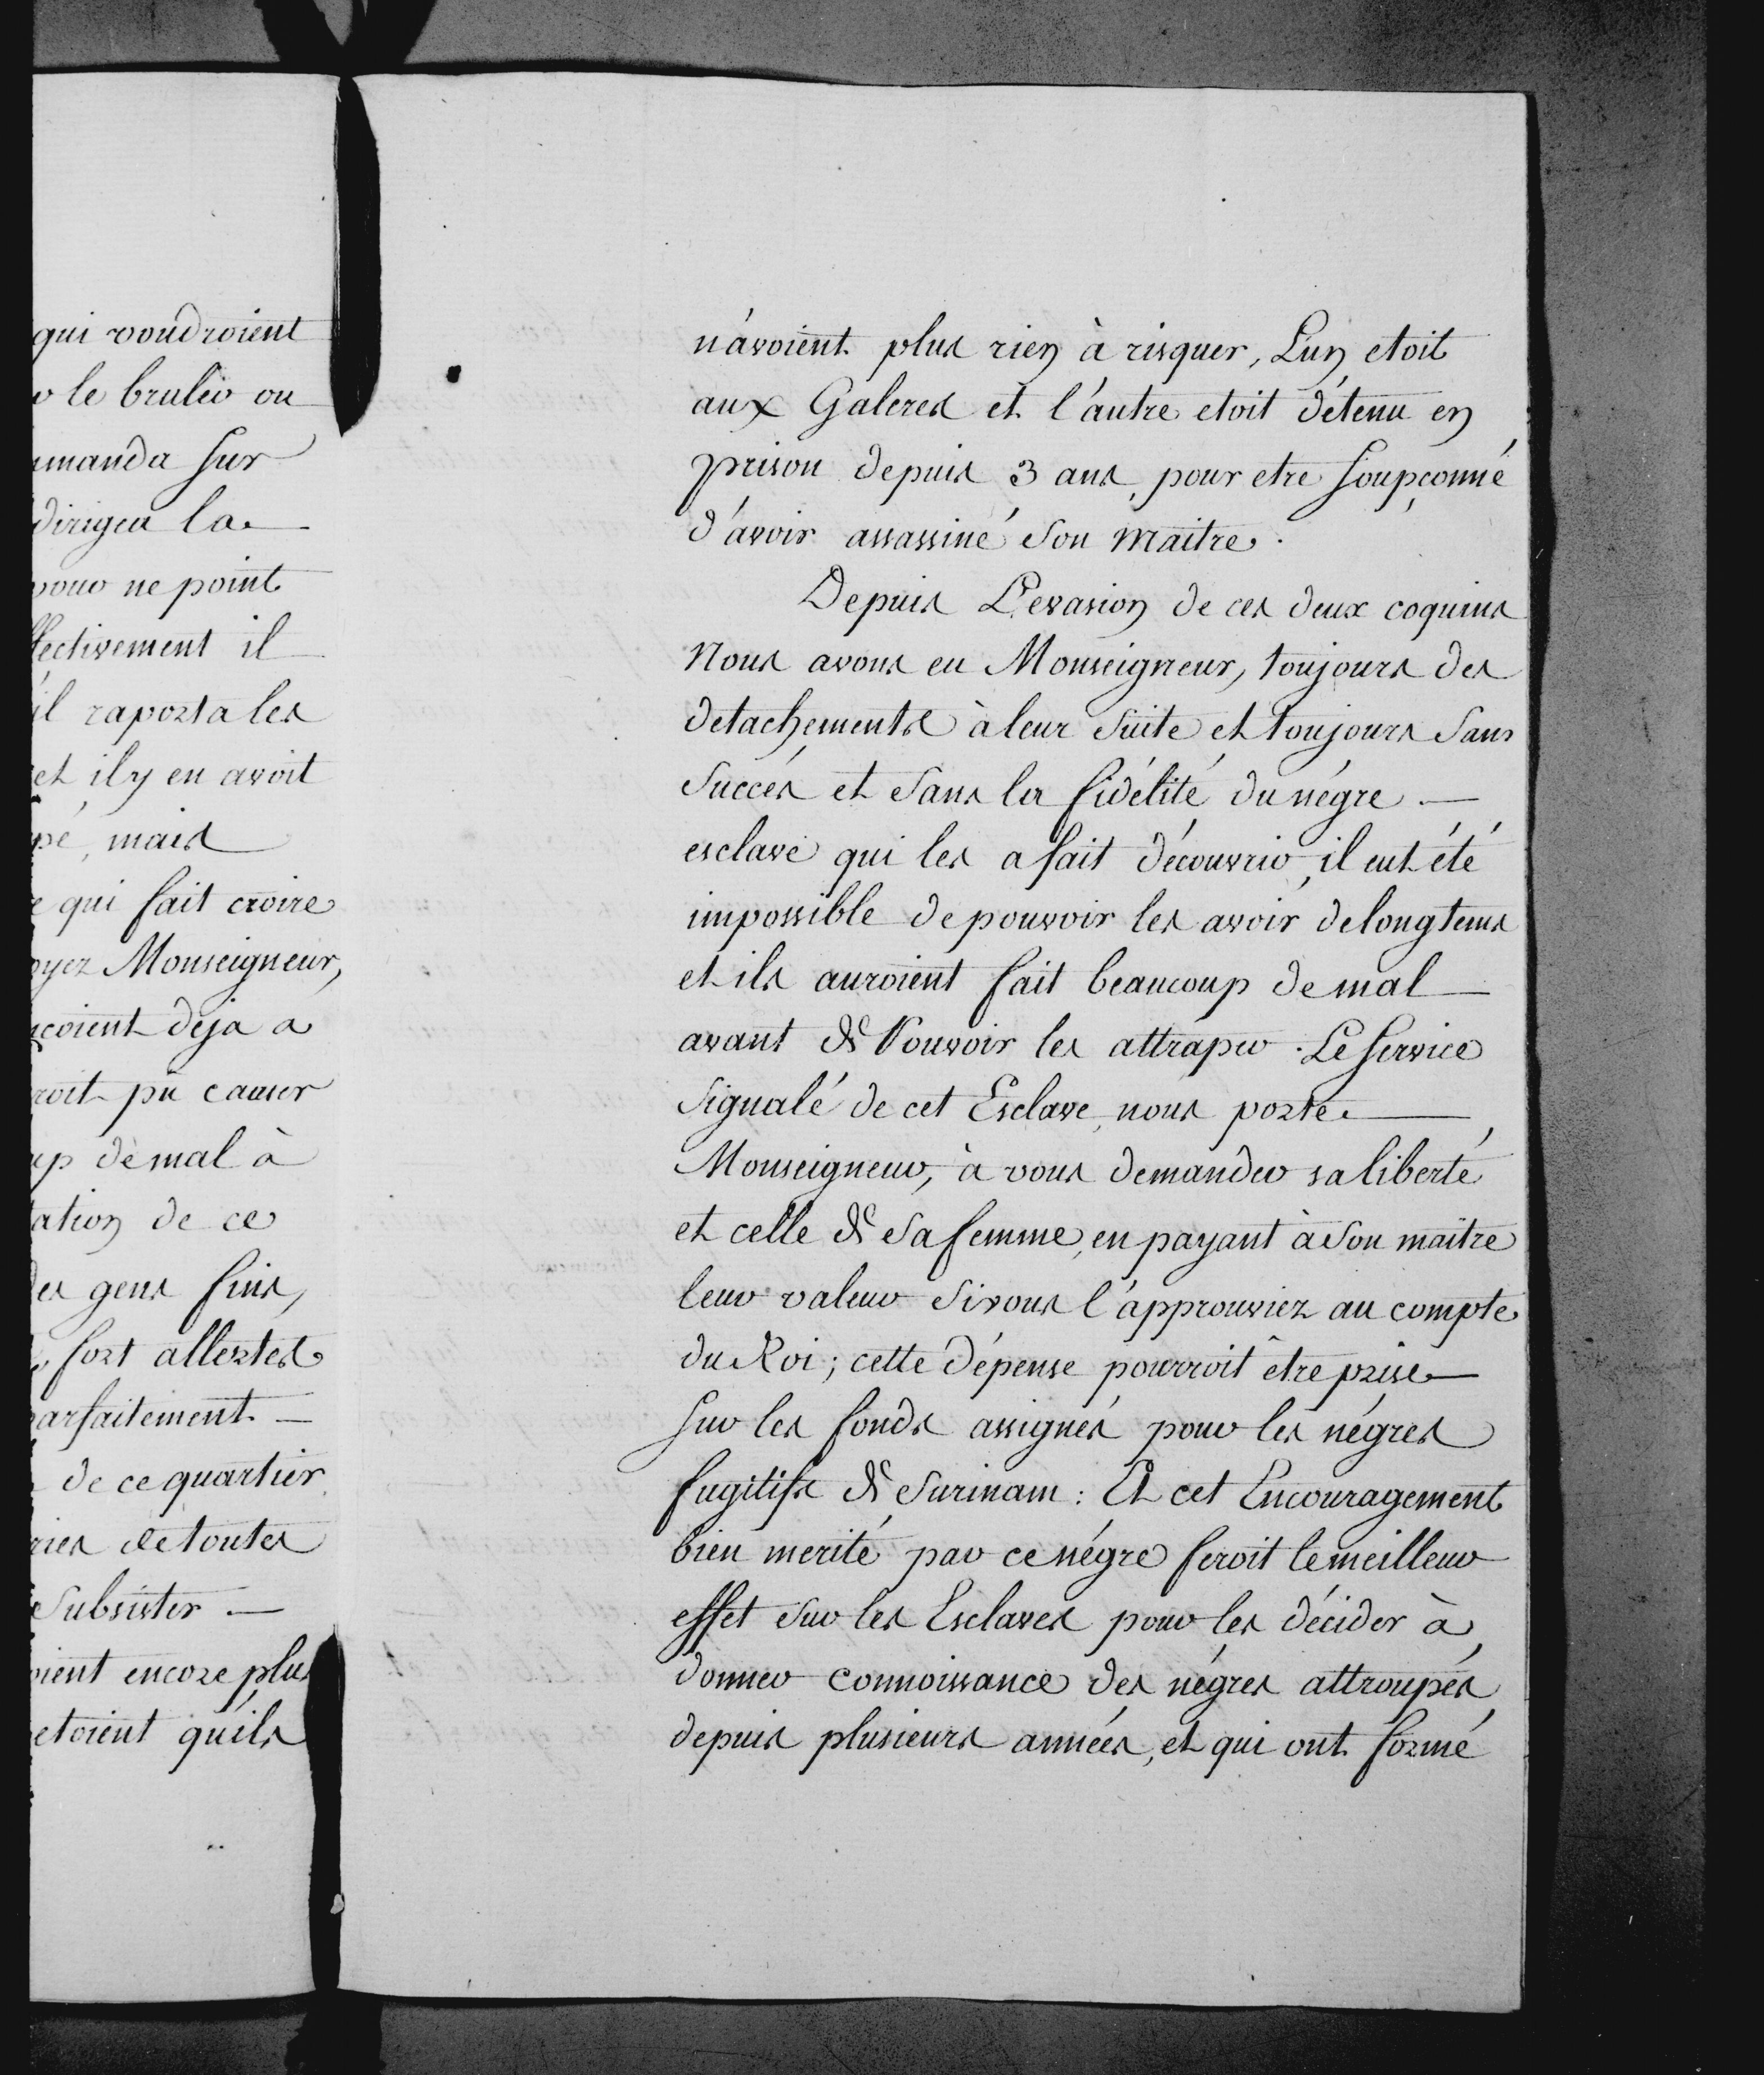 qui voudroient
le bruler ou
manda sur
dirigea la
pour ne point
ffectivement il
il raporta les
et il y en avoit
pé, mais
e qui fait croire
oyez Monseigneur,
çoient déja a
roit pu causer
up de mal à
tation de ce
des gens fins,
fort allertes
parfaitement
de ce quartier
ries de toutes
subsister
oient encore plus
etoient qu'ils
n'avoient plus rien à risquer, L'un etoit
aux Galeres et l'autre etoit détenu en
prison depuis 3 ans, pour etre soupçonné
d'avoir assassiné son maitre.
Depuis L'evasion de ces deux coquins
nous avons eu Monseigneur, toujours des
detachements à leur suite et toujours sans
succés et sans la fidélité du négre
esclave qui les a fait découvrir, il eut été
impossible de pouvoir les avoir de longtems
et ils auroient fait beaucoup de mal
avant de Pouvoir les attraper. Le service
signalé de cet Esclave, nous porte
Monseigneur, à vous demander sa liberté
et celle de sa femme, en payant à son maitre
leur valeur si vous l'approuviez au compte
du Roi; cette dépense pourroit être prise
sur les fonds assignés pour les négres
fugitifs de Surinam: Et cet Encouragement
bien merité par ce négre feroit le meilleur
effet sur les Esclaves pour les décider à
donner connoissance des négres attroupés
depuis plusieurs années, et qui ont formé